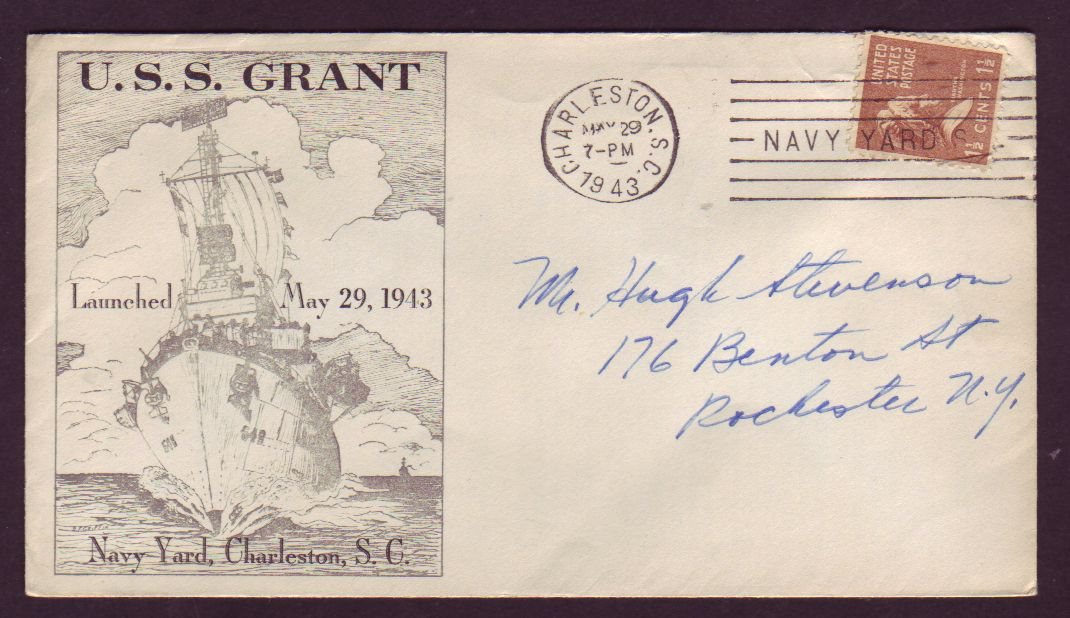 U.S.S. GRANT
Launched May 29, 1943
Navy Yard, Charleston, S. C.
CHARLESTON, S.C.
MAY 29
7-PM
1943
NAVY YARD S
UNITED
STATES
POSTAGE
1½ CENTS 1½
Mr. Hugh Stevenson
176 Benton St
Rochester N.Y.